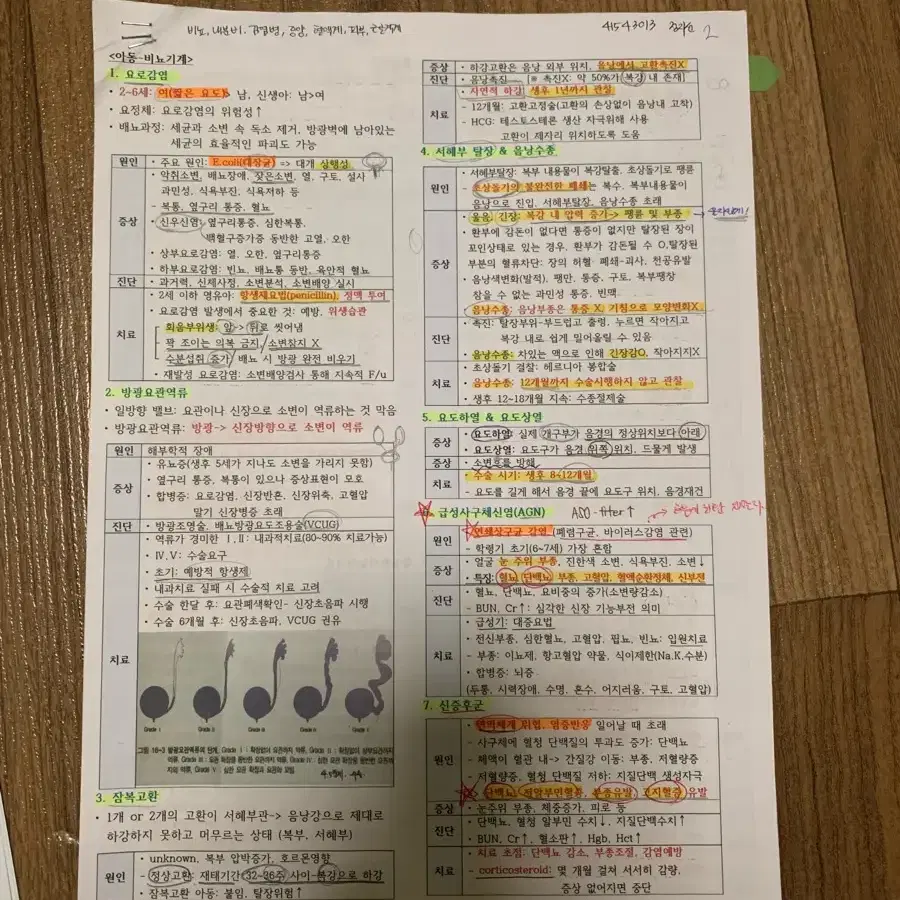 비뇨, 내분비, 감염병, 종양, 혈액계, 피부, 근골격계
41543013
2
<아동-비뇨기계>
1. 요로감염
• 2~6세: 여(짧은 요도)> 남, 신생아: 남>여
• 요정체: 요로감염의 위험성↑
• 배뇨과정: 세균과 소변 속 독소 제거, 방광벽에 남아있는
세균의 효율적인 파괴도 가능
원인 • 주요 원인: E.coli(대장균) => 대개 상행성
증상 • 악취소변, 배뇨장애, 잦은소변, 열, 구토, 설사
과민성, 식욕부진, 식욕저하 등
- 복통, 옆구리 통증, 혈뇨
• 신우신염: 옆구리통증, 심한복통,
백혈구증가증 동반한 고열, 오한
• 상부요로감염: 열, 오한, 옆구리통증
• 하부요로감염: 빈뇨, 배뇨통 동반, 육안적 혈뇨
진단 • 과거력, 신체사정, 소변분석, 소변배양 실시
치료 • 2세 이하 영유아: 항생제요법(penicillin), 정맥 투여
• 요로감염 발생에서 중요한 것: 예방, 위생습관
회음부위생: 앞->뒤로 씻어냄
꽉 조이는 의복 금지, 소변참지 X
수분섭취 증가, 배뇨 시 방광 완전 비우기
• 재발성 요로감염: 소변배양검사 통해 지속적 F/u
2. 방광요관역류
• 일방향 밸브: 요관이나 신장으로 소변이 역류하는 것 막음
• 방광요관역류: 방광-> 신장방향으로 소변이 역류
원인 해부학적 장애
증상 • 유뇨증(생후 5세가 지나도 소변을 가리지 못함)
• 옆구리 통증, 복통이 있으나 증상표현이 모호
• 합병증: 요로감염, 신장반흔, 신장위축, 고혈압
말기 신장병증 초래
진단 • 방광조영술, 배뇨방광요도조용술(VCUG)
치료 • 역류가 경미한 Ⅰ,Ⅱ: 내과적치료(80~90% 치료가능)
• Ⅳ.Ⅴ: 수술요구
• 초기: 예방적 항생제
• 내과치료 실패 시 수술적 치료 고려
• 수술 한달 후: 요관폐색확인- 신장초음파 시행
• 수술 6개월 후: 신장초음파, VCUG 권유
Grade Ⅰ Grade Ⅱ Grade Ⅲ Grade Ⅳ Grade Ⅴ
그림 16-3 방광요관역류의 단계.
3. 잠복고환
• 1개 or 2개의 고환이 서혜부관-> 음낭강으로 제대로
하강하지 못하고 머무르는 상태 (복부, 서혜부)
원인 • unknown, 복부 압박증가, 호르몬영향
• 정상고환: 재태기간 32~36주 사이-복강으로 하강
• 잠복고환 아동: 불임, 탈장위험↑
증상 • 하강고환은 음낭 외부 위치, 음낭에서 고환촉진X
진단 • 음낭촉진 [※ 촉진X: 약 50%가 복강 내 존재]
치료 • 자연적 하강: 생후 1년까지 관찰
- 12개월: 고환고정술(고환의 손상없이 음낭내 고착)
- HCG: 테스토스테론 생산 자극위해 사용
고환이 제자리 위치하도록 도움
4. 서혜부 탈장 & 음낭수종
원인 • 서혜부탈장: 복부 내용물이 복강탈출, 초상돌기로 팽륜
초상돌기의 불완전한 폐쇄는 복수, 복부내용물이
음낭으로 진입, 서혜부탈장, 음낭수종 초래
증상 • 울음, 긴장: 복강 내 압력 증가-> 팽륜 및 부종
• 환부에 감돈이 없다면 통증이 없지만 탈장된 장이
꼬인상태로 있는 경우, 환부가 감돈될 수 O,탈장된
부분의 혈류차단: 장의 허혈·폐쇄-괴사, 천공유발
• 음낭색변화(발적), 팽만, 통증, 구토, 복부팽창
참을 수 없는 과민성 통증, 빈맥
• 음낭수종: 음낭부종은 통증 X, 기침으로 모양변화X
진단 • 촉진: 탈장부위-부드럽고 출렁, 누르면 작아지고
복강 내로 쉽게 밀어올릴 수 있음
• 음낭수종: 차있는 액으로 인해 긴장감O, 작아지지X
치료 • 초상돌기 결찰: 헤르니아 봉합술
• 음낭수종: 12개월까지 수술시행하지 않고 관찰
• 생후 12~18개월 지속: 수종절제술
5. 요도하열 & 요도상열
증상 • 요도하열: 실제 개구부가 음경의 정상위치보다 아래
• 요도상열: 요도구가 음경 위쪽 위치, 드물게 발생
증상 • 소변흐름 방해
치료 • 수술 시기: 생후 8~12개월
- 요도를 길게 해서 음경 끝에 요도구 위치, 음경재건
6. 급성사구체신염(AGN) ASO-titer↑
원인 • 연쇄상구균 감염 (폐렴구균, 바이러스감염 관련)
- 학령기 초기(6~7세) 가장 흔함
증상 • 얼굴 눈 주위 부종, 진한색 소변, 식욕부진, 소변↓
• 특징: 혈뇨, 단백뇨, 부종, 고혈압, 혈액순환정체, 신부전
진단 • 혈뇨, 단백뇨, 요비중의 증가(소변량감소)
- BUN, Cr↑: 심각한 신장 기능부전 의미
치료 • 급성기: 대증요법
• 전신부종, 심한혈뇨, 고혈압, 핍뇨, 빈뇨: 입원치료
- 부종: 이뇨제, 항고혈압 약물, 식이제한(Na,K,수분)
• 합병증: 뇌증
(두통, 시력장애, 수명, 혼수, 어지러움, 구토, 고혈압)
7. 신증후군
원인 • 면역체계 위협, 염증반응 일어날 때 초래
- 사구체에 혈청 단백질의 투과도 증가: 단백뇨
- 폐액이 혈관 내-> 간질강 이동: 부종, 저혈량증
- 저혈량증, 혈청 단백질 저하: 지질단백 생성자극
단백뇨, 저알부민혈증, 부종유발, 고지혈증 유발
증상 • 눈주위 부종, 체중증가, 피로 등
진단 • 단백뇨, 혈청 알부민 수치↓, 지질단백수치↑
• BUN, Cr↑, 혈소판↑, Hgb, Hct↑
치료 • 치료 초점: 단백뇨 감소, 부종조절, 감염예방
- corticosteroid: 몇 개월 걸쳐 서서히 감량,
증상 없어지면 중단